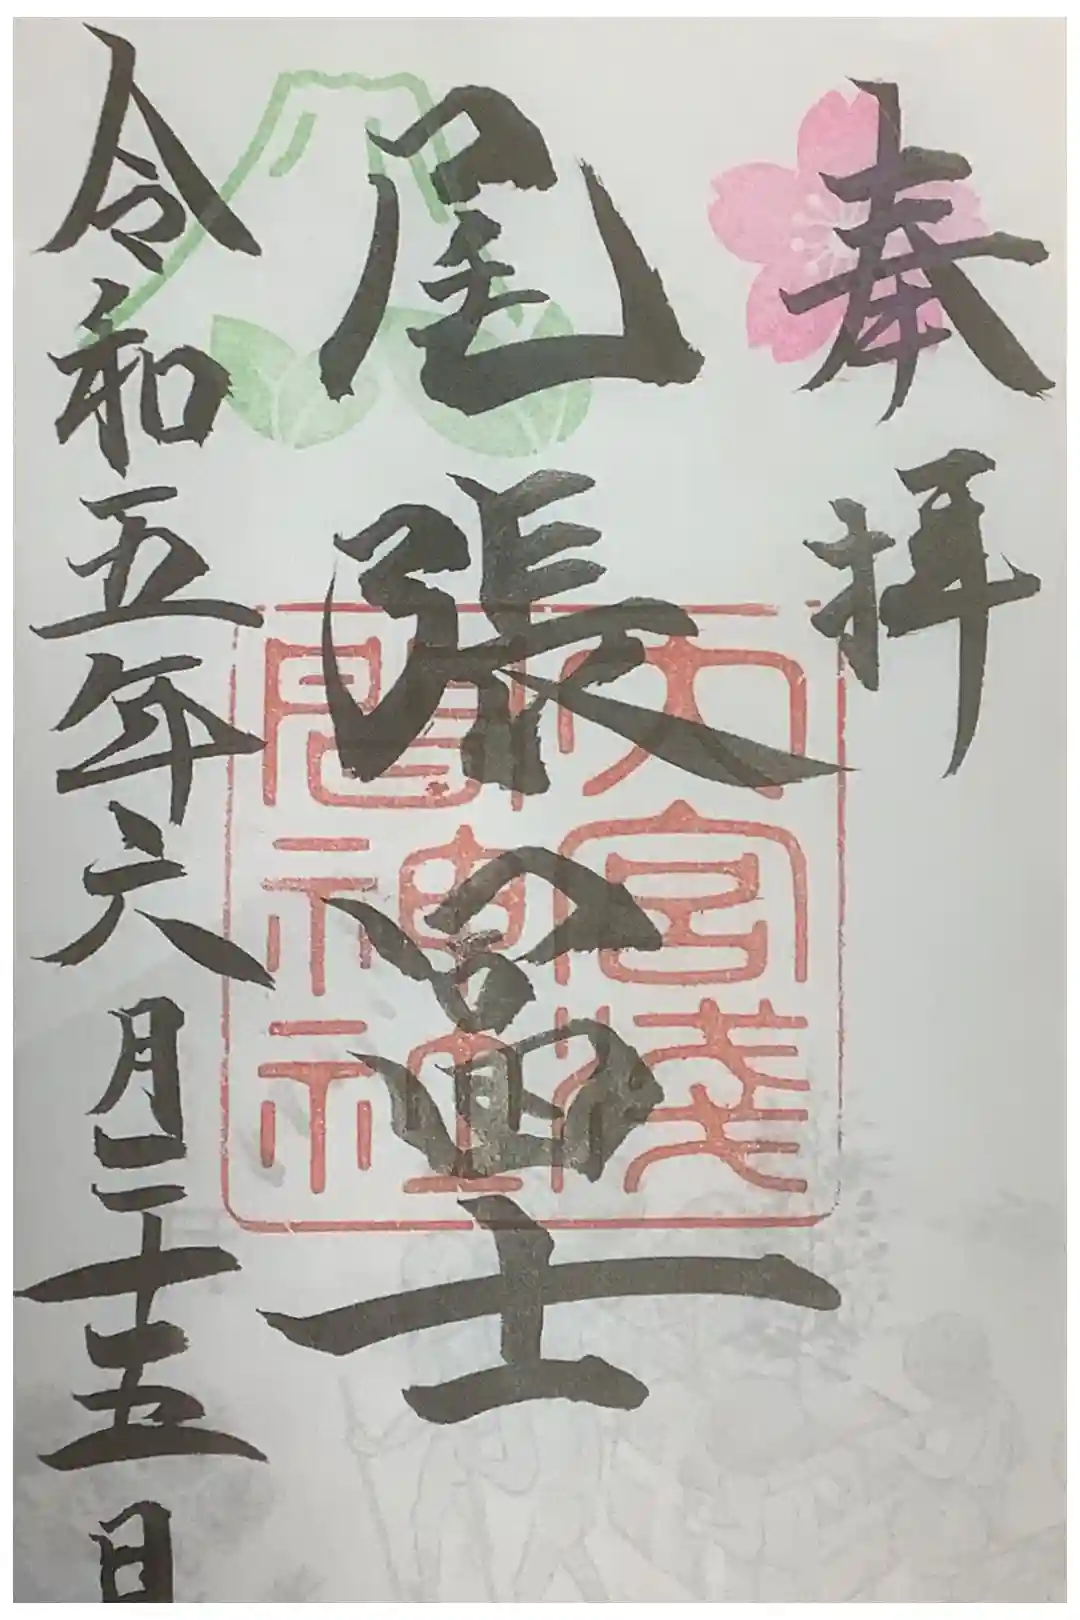 奉拝
尾張冨士
大宮浅
間神社
令和五年六月二十五日